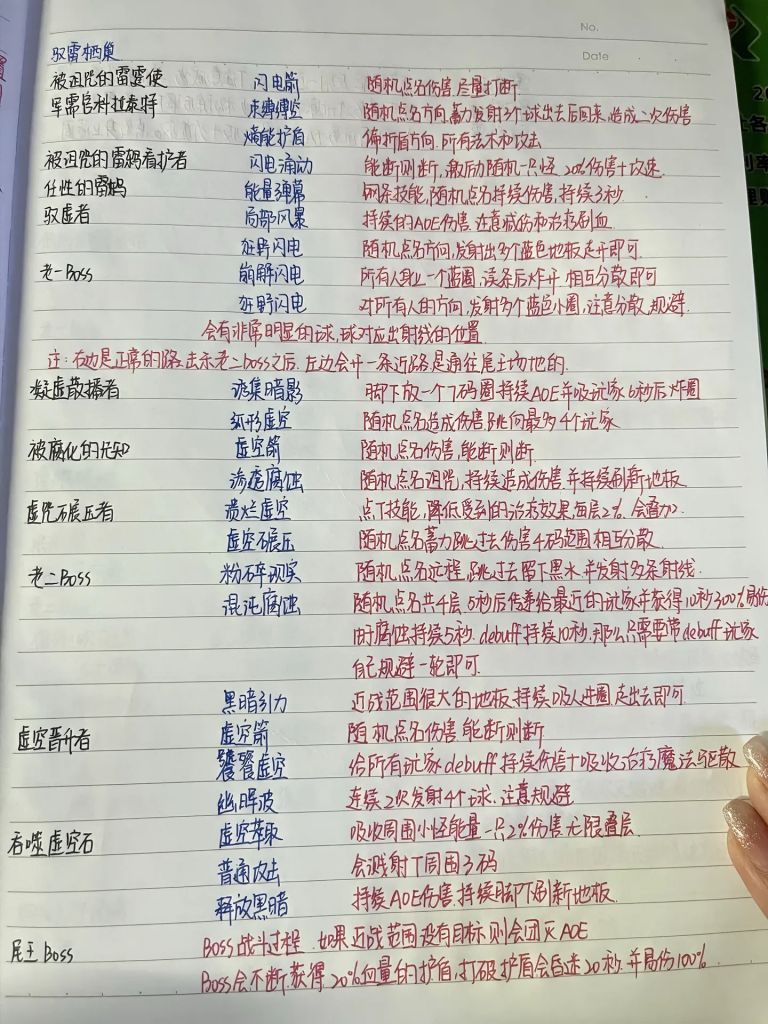 No.
Date
驭雷栖巢
被诅咒的雷霆使 闪电箭 随机点名伤害,尽量打断.
军需官科拉泰特 束缚标 随机点名方向,蓄力发射3个球出去后回来,造成二次伤害
熵能护盾 偏折盾方向.所有法术和攻击
被诅咒的雷鸦看护者 闪电涌动 能断则断,激励随机一只怪 20%伤害+攻速.
任性的雷鸦 能量弹幕 钢条技能,随机点名持续伤害,持续3秒.
驭虚者 局部风暴 持续的AOE伤害.注意减伤和治疗刷血
狂野闪电 随机点名方向,发射出多个蓝色地板走开即可.
老一Boss 崩解闪电 所有人身上一个蓝圈,读条后炸开.相互分散即可
狂野闪电 对所有人的方向,发射多个蓝色小圈,注意分散,规避.
会有非常明显的球,球对应出射线的位置.
注:右边是正常的路.击杀老二boss之后.左边会开一条近路是通往尾王场地的.
凝虚散播者 汲集暗影 脚下放一个7码圈.持续AOE并吸玩家.6秒后炸圈
弧形虚空 随机点名造成伤害.跳向最多4个玩家.
被腐化的先知 虚空箭 随机点名伤害,能断则断.
渗透腐蚀 随机点名诅咒,持续造成伤害.并持续刷新地板.
虚咒碾压者 溃烂虚空 点T技能,降低受到的治疗效果,每层2%.会叠加.
虚空碾压 随机点名蓄力跳过去伤害4码范围.相互分散.
老二Boss 粉碎现实 随机点名远程,跳过去留下黑水.并发射多条射线.
混沌腐蚀 随机点名共4层.5秒后传染给最近的玩家并获得10秒300%易伤
由于腐蚀持续5秒.debuff持续10秒.那么只需要带debuff玩家
自己规避一轮即可.
黑暗引力 近战范围很大的地板,持续吸人进圈.走出去即可.
虚空晋升者 虚空箭 随机点名伤害,能断则断
饕餮虚空 给所有玩家debuff,持续伤害+吸收治疗,魔法驱散
幽晖波 连续2次发射4个球.注意规避
吞噬虚空石 虚空萃取 吸收周围小怪能量一只2%伤害无限叠层.
普通攻击 会溅射T周围3码
释放黑暗 持续AOE伤害.持续脚下刷新地板.
尾王Boss Boss战斗过程.如果近战范围没有目标.则会团灭AOE
Boss会不断获得20%血量的护盾,打破护盾会昏迷20秒.并易伤100%.